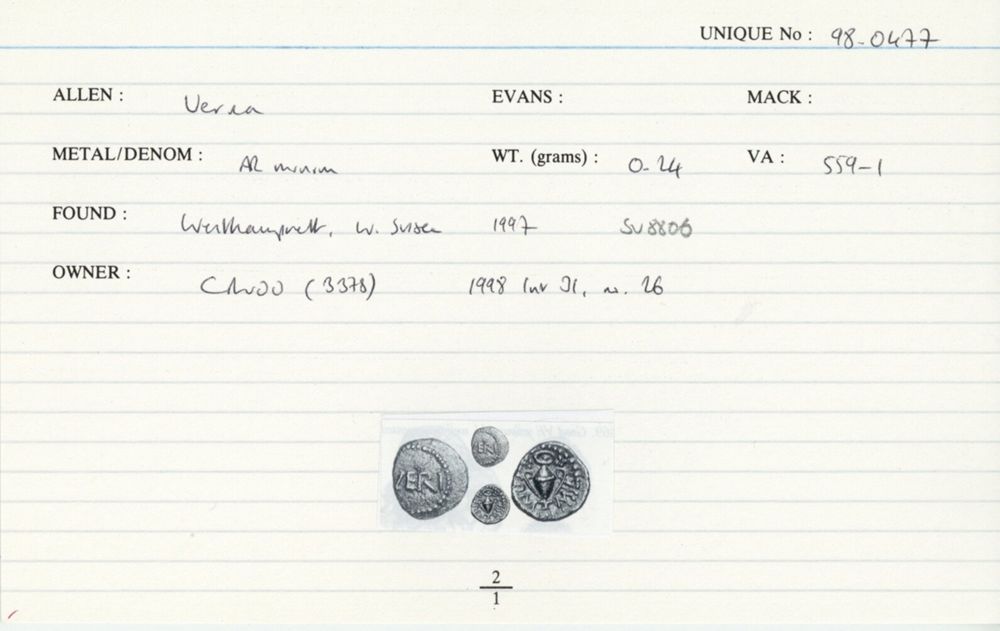 UNIQUE No : 98-0477
ALLEN : Verica EVANS : MACK :
METAL/DENOM : AR minim WT. (grams) : 0-24 VA : 559-1
FOUND : Westhampnett, W. Sussex 1997 SU8806
OWNER : (3378) 1998 31, no. 26
VERI
2
1